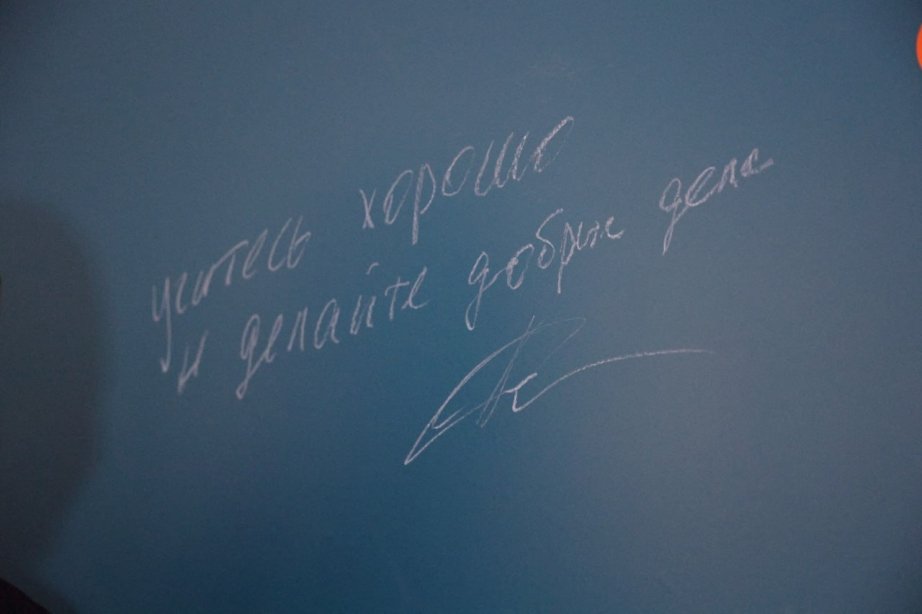 учитесь хорошо
и делайте добрые дела